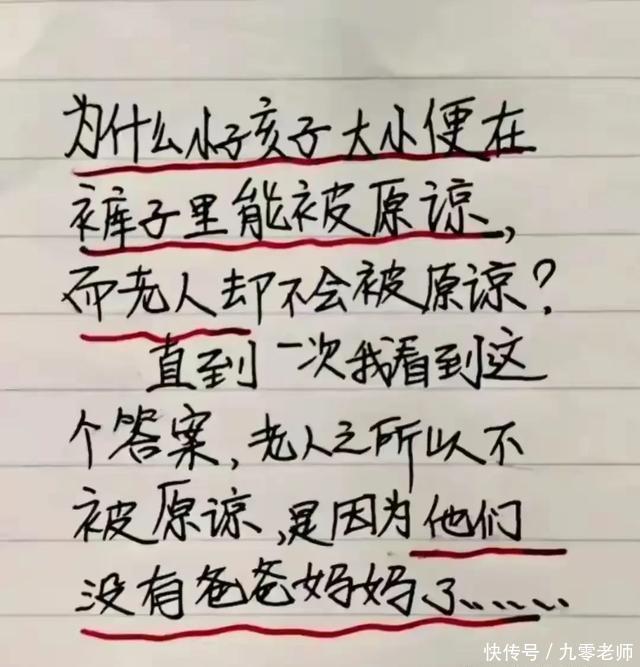 为什么小孩子大小便在
裤子里能被原谅，
而老人却不会被原谅？
直到一次我看到这
个答案，老人之所以不
被原谅，是因为他们
没有爸爸妈妈了……
快传号/九零老师